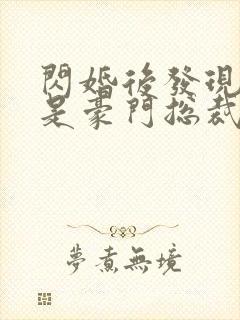 閃婚後發現
是豪門總裁
夢煮無境